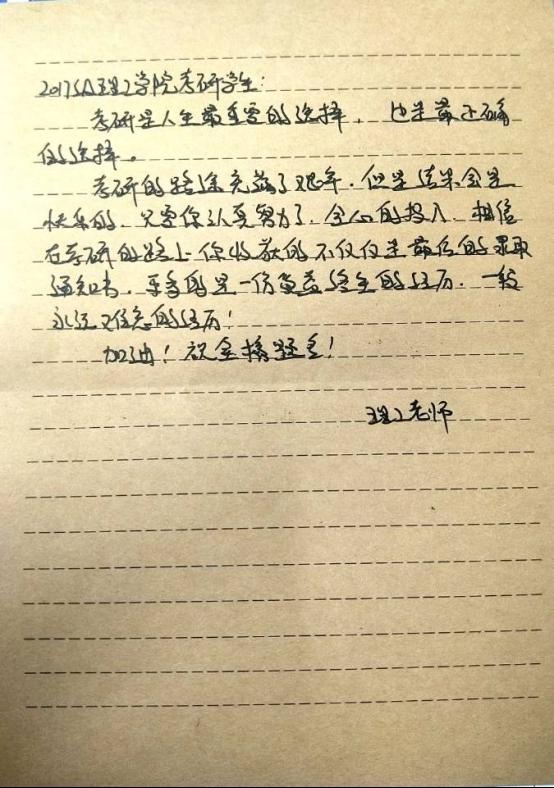 2017级理工学院考研学生:
考研是人生最重要的选择, 也是最正确
的选择。
考研的路途充满了艰辛, 但是结果会是
快乐的, 只要你认真努力了, 全心的投入, 相信
在考研的路上你收获的不仅仅是最后的录取
通知书, 更多的是一份受益终生的经历, 一段
永远难忘的经历!
加油! 祝金榜题名!
理工老师